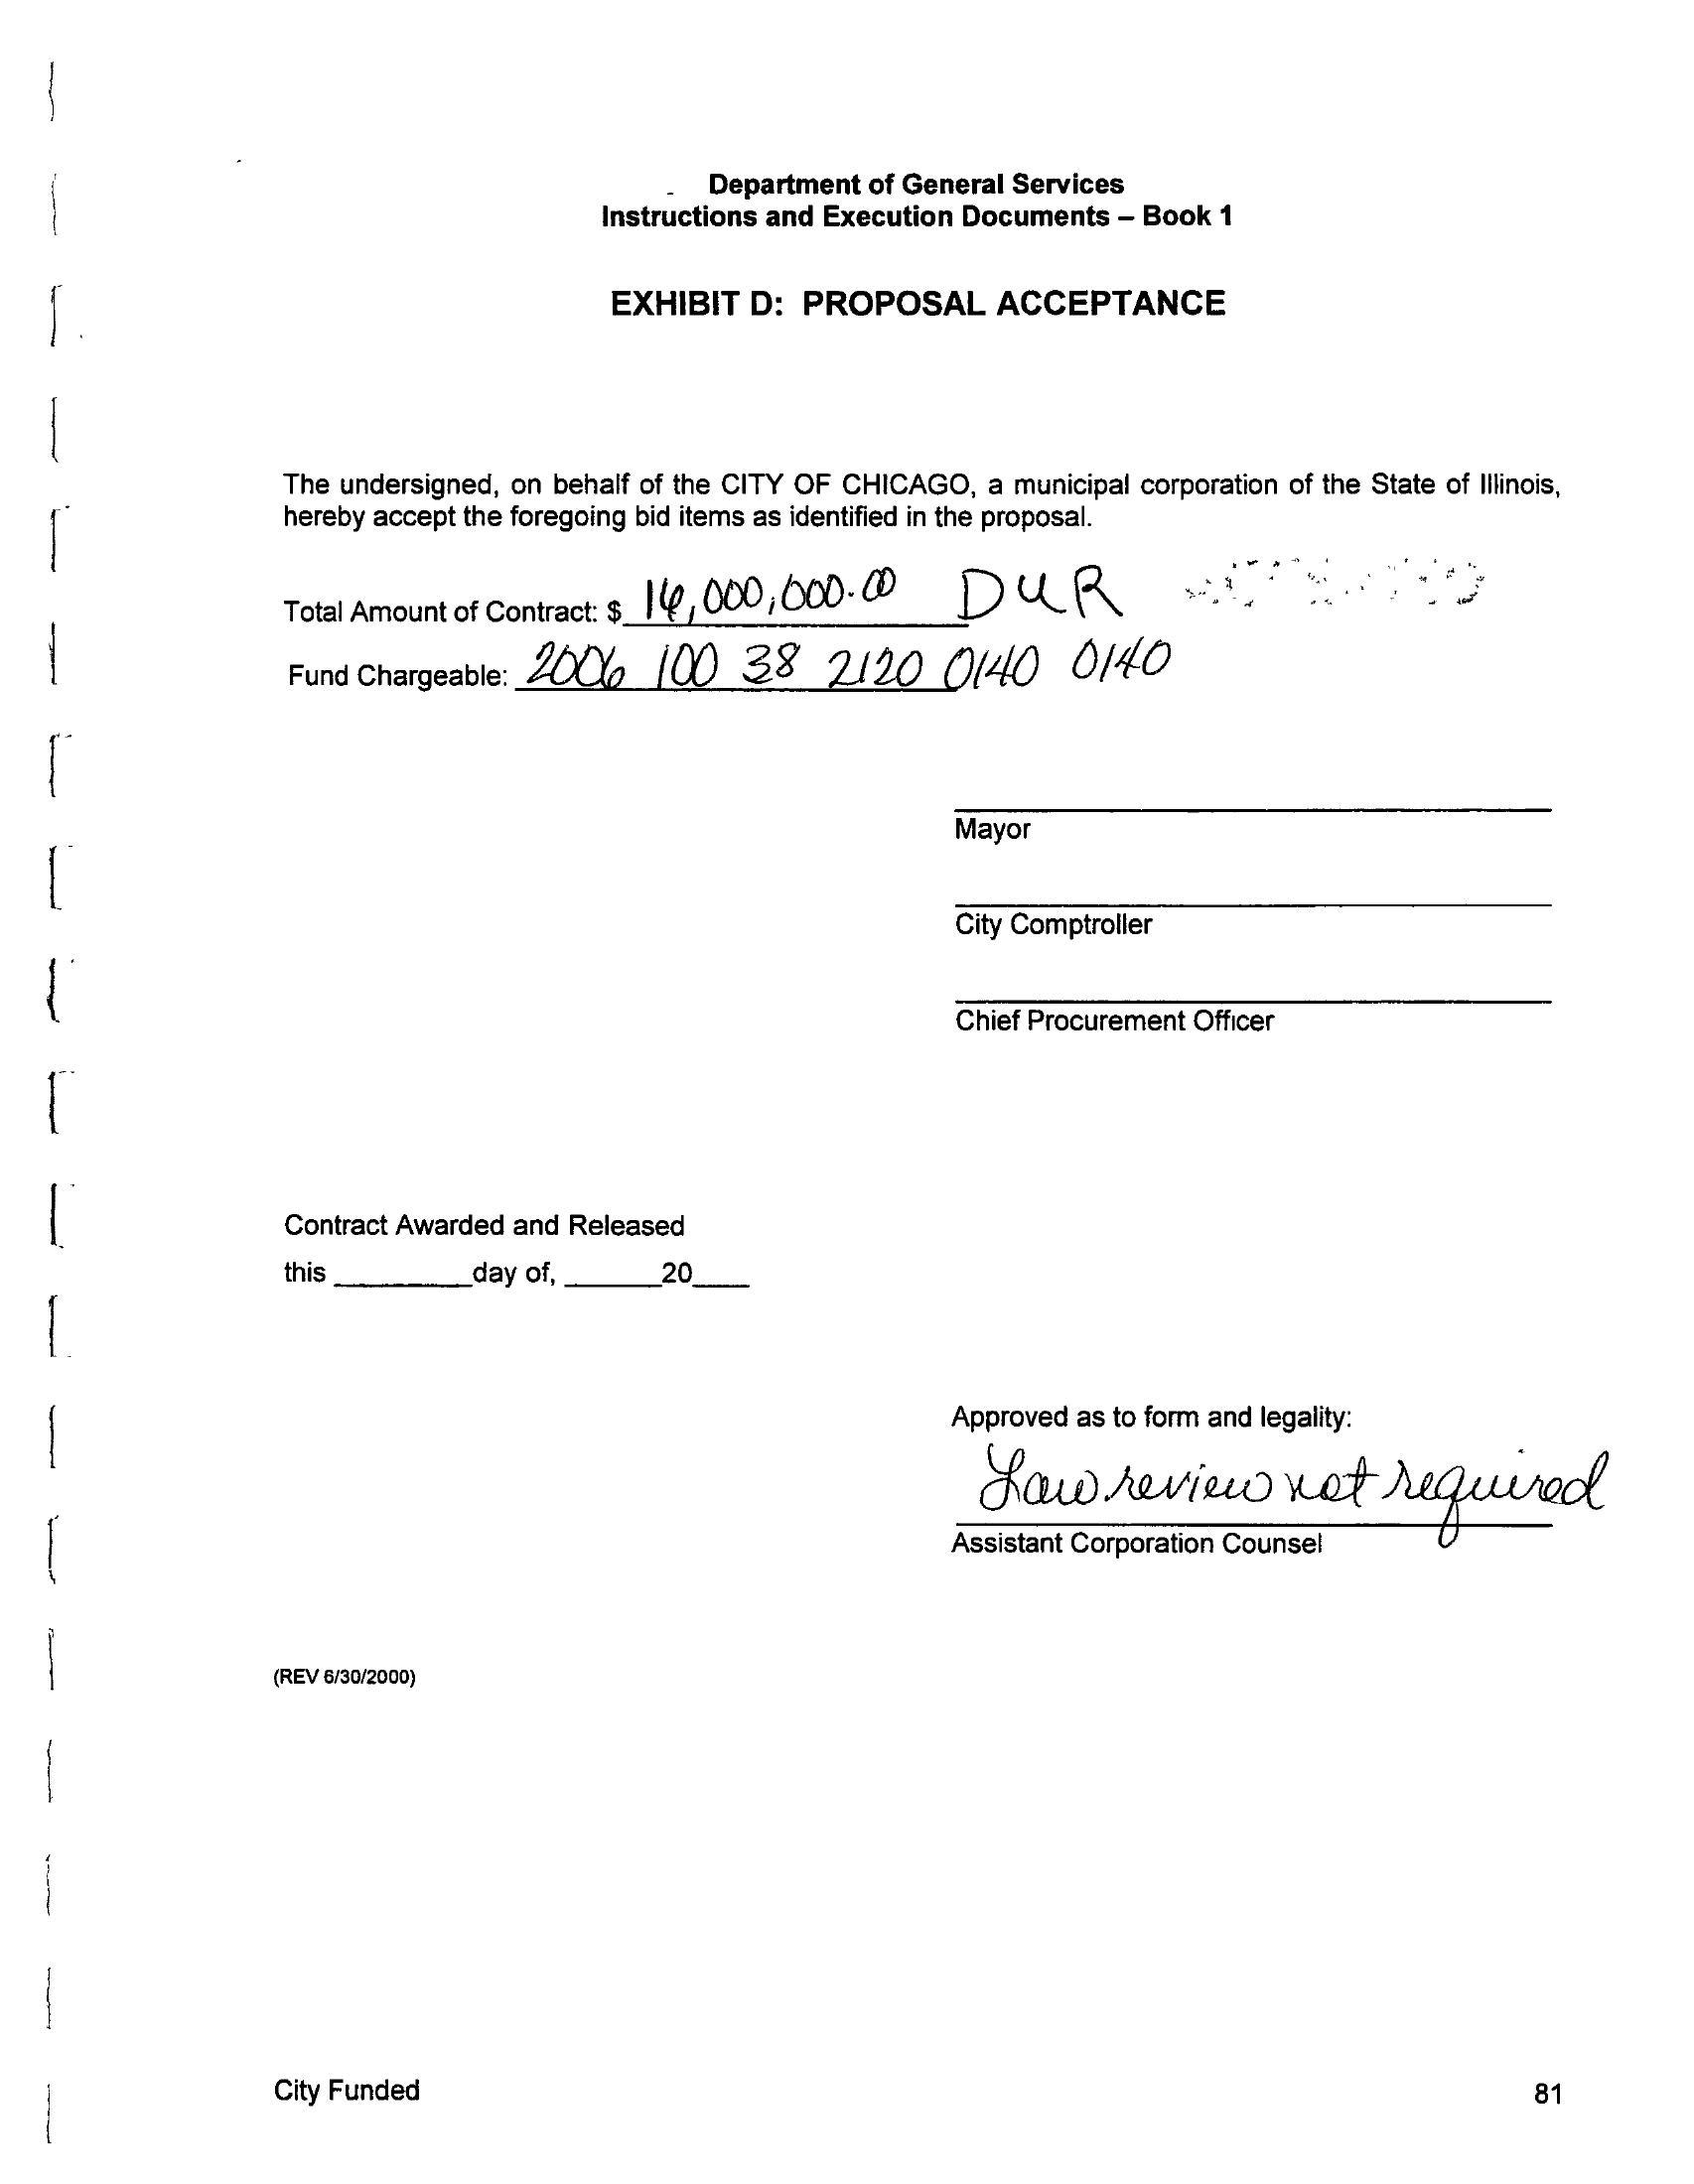 Department of General Services
Instructions and Execution Documents – Book 1
EXHIBIT D: PROPOSAL ACCEPTANCE
The undersigned, on behalf of the CITY OF CHICAGO, a municipal corporation of the State of Illinois,
hereby accept the foregoing bid items as identified in the proposal.
Total Amount of Contract: $ DUR
Fund Chargeable: 2006 100 38 2120 0140 0140
Mayor
City Comptroller
Chief Procurement Officer
Contract Awarded and Released
this _____ day of, _____ 20___
Approved as to form and legality:
Law review not required
Assistant Corporation Counsel
(REV 6/30/2000)
City Funded 81